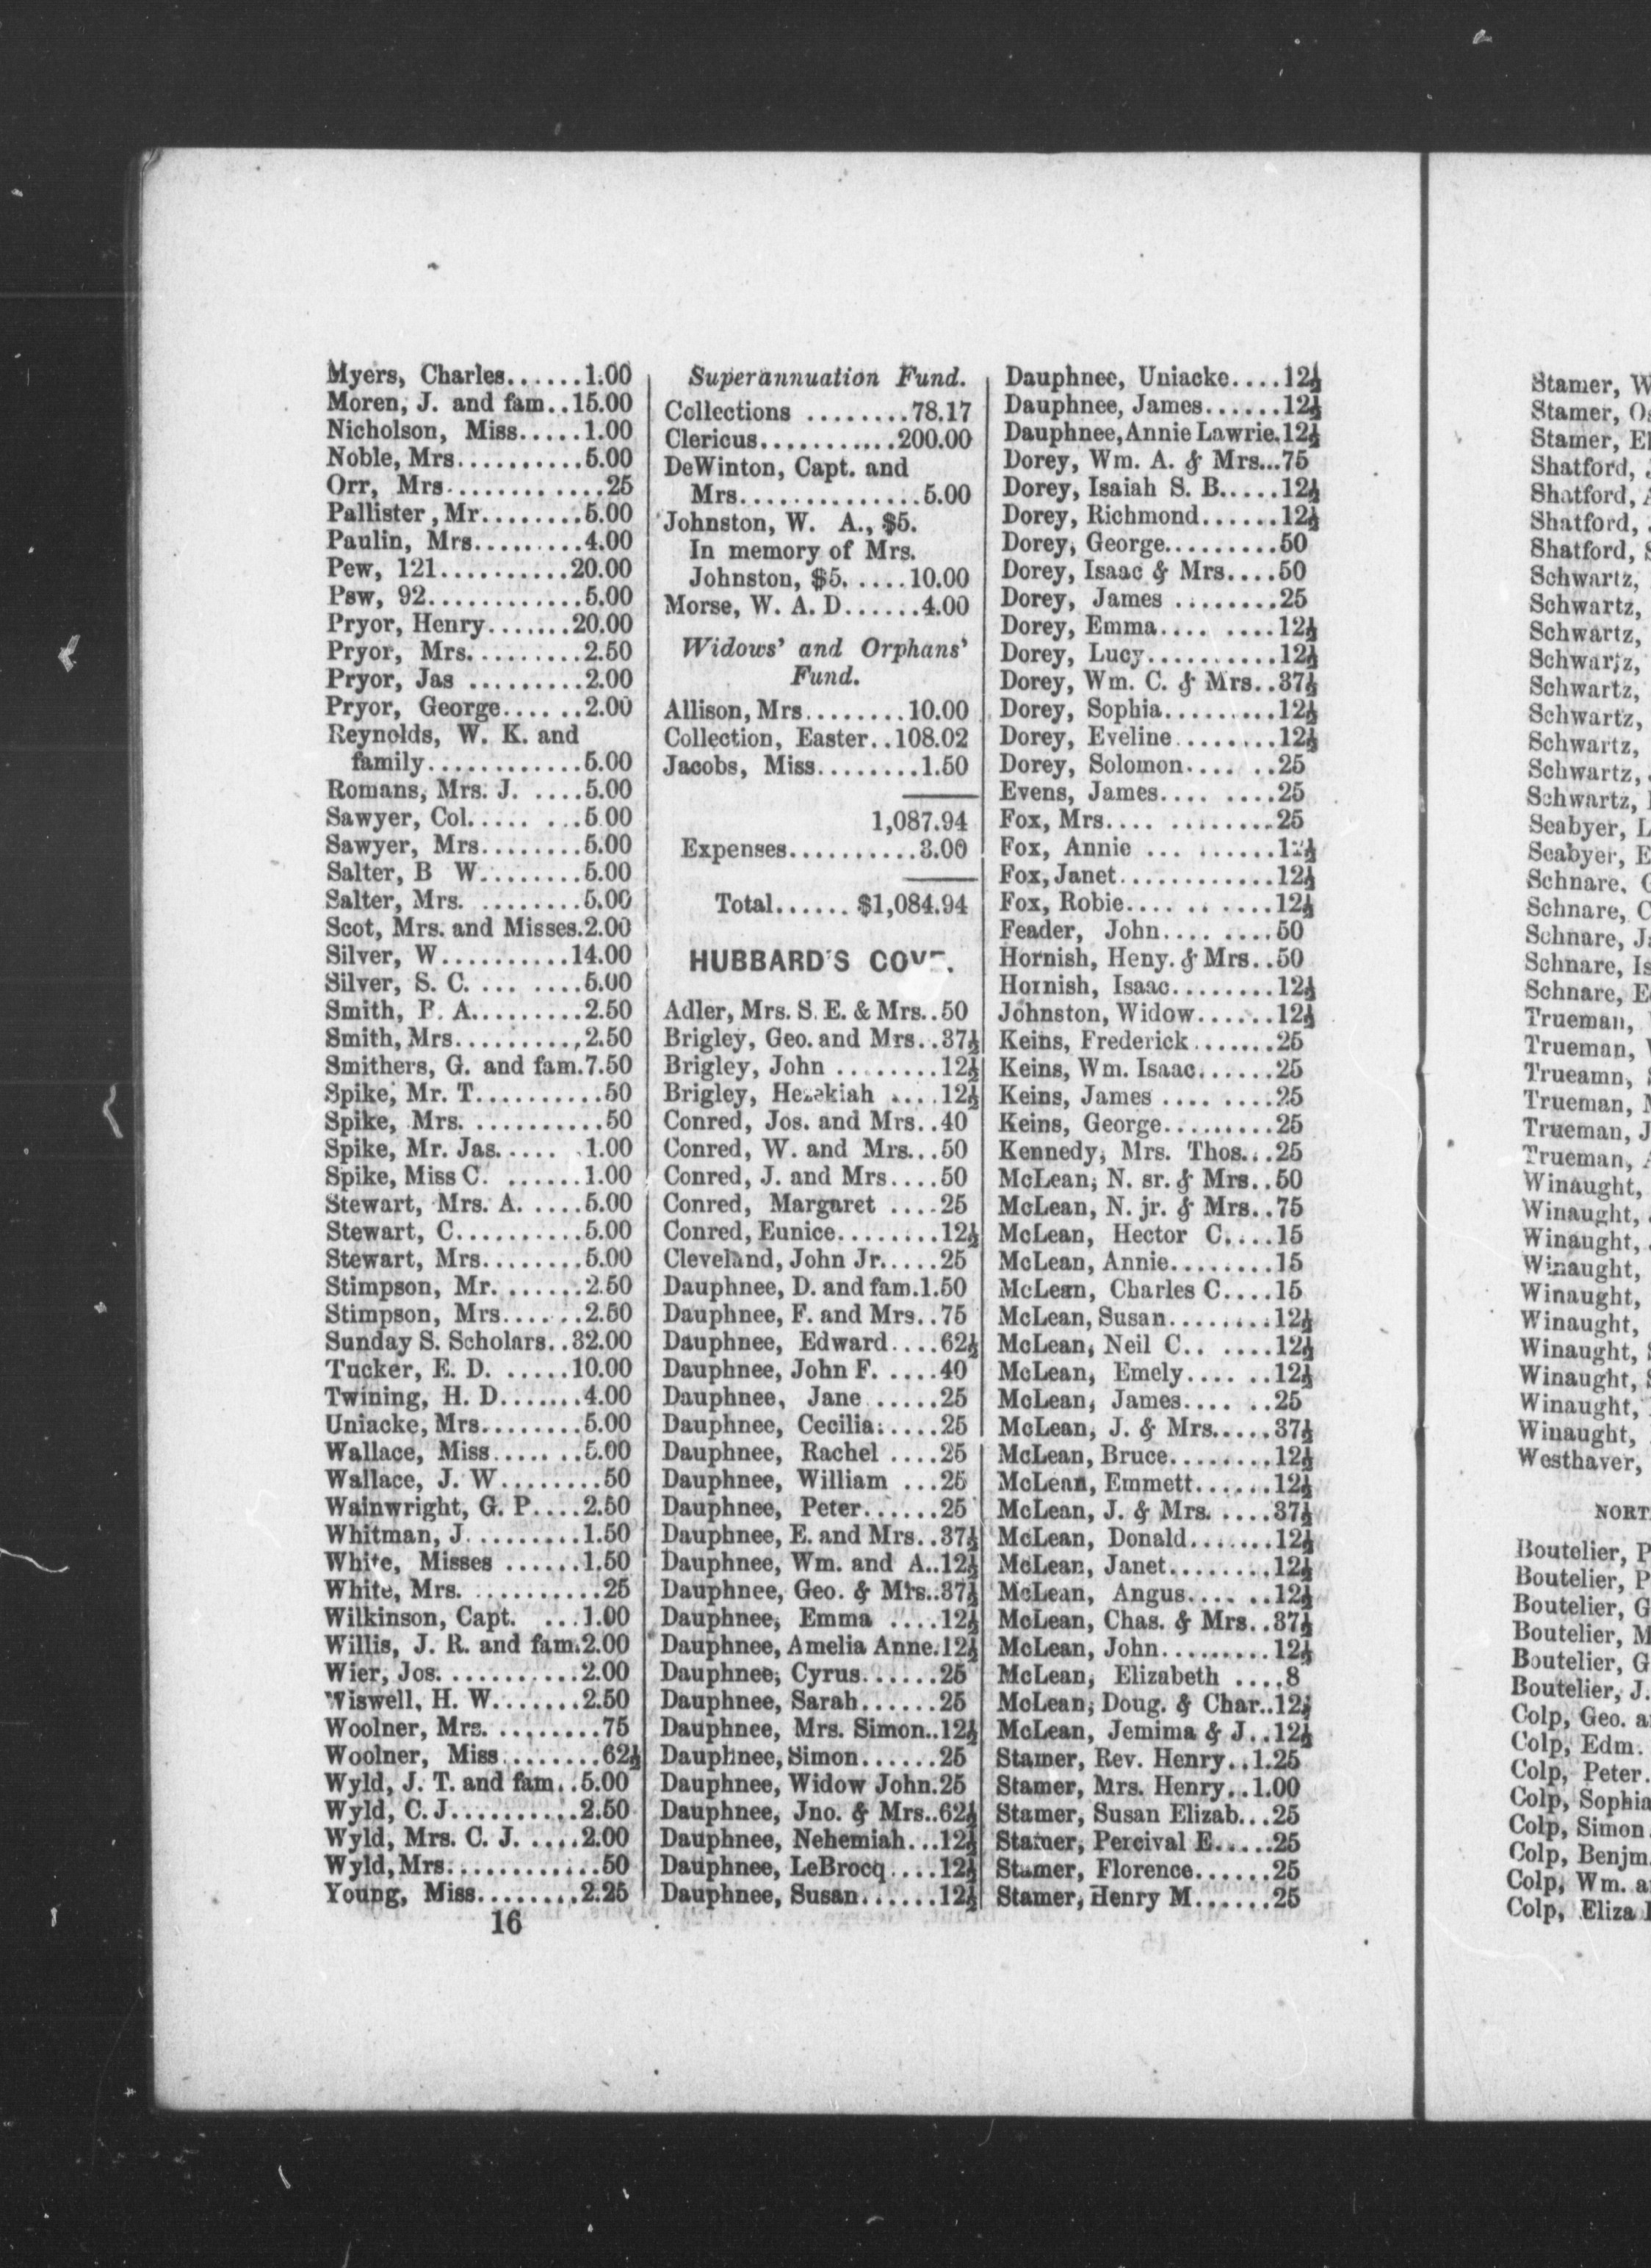 Myers, Charles......1.00
Moren, J. and fam..15.00
Nicholson, Miss.....1.00
Noble, Mrs..........5.00
Orr, Mrs............25
Pallister, Mr........5.00
Paulin, Mrs.........4.00
Pew, 121...........20.00
Pew, 92.............5.00
Pryor, Henry.......20.00
Pryor, Mrs..........2.50
Pryor, Jas ..........2.00
Pryor, George.......2.00
Reynolds, W. K. and
family............5.00
Romans, Mrs. J. ....5.00
Sawyer, Col..... ...5.00
Sawyer, Mrs........5.00
Salter, B W........5.00
Salter, Mrs. ........5.00
Scot, Mrs. and Misses.2.00
Silver, W..........14.00
Silver, S. C. ... .....5.00
Smith, P. A.........2.50
Smith, Mrs..........2.50
Smithers, G. and fam.7.50
Spike, Mr. T..........50
Spike, Mrs. ..........50
Spike, Mr. Jas..... .1.00
Spike, Miss C. ......1.00
Stewart, Mrs. A. .....5.00
Stewart, C..........5.00
Stewart, Mrs........5.00
Stimpson, Mr. ......2.50
Stimpson, Mrs......2.50
Sunday S. Scholars..32.00
Tucker, E. D. .....10.00
Twining, H. D.......4.00
Uniacke, Mrs........5.00
Wallace, Miss..... ..5.00
Wallace, J. W........50
Wainwright, G. P....2.50
Whitman, J..........1.50
White, Misses ......1.50
White, Mrs. ..........25
Wilkinson, Capt. ...1.00
Willis, J. R. and fam.2.00
Wier, Jos. ...........2.00
Wiswell, H. W.......2.50
Woolner, Mrs. ........75
Woolner, Miss........62½
Wyld, J. T. and fam..5.00
Wyld, C. J..........2.50
Wyld, Mrs. C. J. ....2.00
Wyld, Mrs............50
Young, Miss........2.25
16
Superannuation Fund.
Collections ........78.17
Clericus...........200.00
DeWinton, Capt. and
Mrs...............5.00
Johnston, W. A., $5.
In memory of Mrs.
Johnston, $5.....10.00
Morse, W. A. D......4.00
Widows' and Orphans'
Fund.
Allison, Mrs........10.00
Collection, Easter..108.02
Jacobs, Miss........1.50
1,087.94
Expenses..........3.00
Total......$1,084.94
HUBBARD'S COVE.
Adler, Mrs. S. E. & Mrs..50
Brigley, Geo. and Mrs..37½
Brigley, John ........12½
Brigley, Hezekiah ....12½
Conred, Jos. and Mrs..40
Conred, W. and Mrs...50
Conred, J. and Mrs....50
Conred, Margaret ....25
Conred, Eunice........12½
Cleveland, John Jr.....25
Dauphnee, D. and fam.1.50
Dauphnee, F. and Mrs..75
Dauphnee, Edward....62½
Dauphnee, John F. ....40
Dauphnee, Jane .....25
Dauphnee, Cecilia.....25
Dauphnee, Rachel ....25
Dauphnee, William ...25
Dauphnee, Peter......25
Dauphnee, E. and Mrs..37½
Dauphnee, Wm. and A..12½
Dauphnee, Geo. & Mrs..37½
Dauphnee, Emma ....12½
Dauphnee, Amelia Anne.12½
Dauphnee, Cyrus......25
Dauphnee, Sarah......25
Dauphnee, Mrs. Simon..12½
Dauphnee, Simon......25
Dauphnee, Widow John.25
Dauphnee, Jno. & Mrs..62½
Dauphnee, Nehemiah...12½
Dauphnee, LeBrocq....12½
Dauphnee, Susan......12½
Dauphnee, Uniacke....12½
Dauphnee, James......12½
Dauphnee, Annie Lawrie.12½
Dorey, Wm. A. & Mrs...75
Dorey, Isaiah S. B.....12½
Dorey, Richmond......12½
Dorey, George.........50
Dorey, Isaac & Mrs....50
Dorey, James ........25
Dorey, Emma.... ....12½
Dorey, Lucy..........12½
Dorey, Wm. C. & Mrs..37½
Dorey, Sophia.........12½
Dorey, Eveline........12½
Dorey, Solomon.... ..25
Evens, James.... ....25
Fox, Mrs.... .........25
Fox, Annie ... ......12½
Fox, Janet.............12½
Fox, Robie.... .. ....12½
Feader, John.... ....50
Hornish, Heny. & Mrs..50
Hornish, Isaac........12½
Johnston, Widow......12½
Keins, Frederick.......25
Keins, Wm. Isaac......25
Keins, James .... ....25
Keins, George.........25
Kennedy, Mrs. Thos...25
McLean, N. sr. & Mrs..50
McLean, N. jr. & Mrs..75
McLean, Hector C....15
McLean, Annie........15
McLean, Charles C....15
McLean, Susan.........12½
McLean, Neil C.. ....12½
McLean, Emely.... ..12½
McLean, James.... ..25
McLean, J. & Mrs.....37½
McLean, Bruce........12½
McLean, Emmett......12½
McLean, J. & Mrs. ....37½
McLean, Donald.......12½
McLean, Janet........12½
McLean, Angus.... ..12½
McLean, Chas. & Mrs..37½
McLean, John.........12½
McLean, Elizabeth ....8
McLean, Doug. & Char..12½
McLean, Jemima & J..12½
Stamer, Rev. Henry..1.25
Stamer, Mrs. Henry..1.00
Stamer, Susan Elizab...25
Stamer, Percival E.....25
Stamer, Florence......25
Stamer, Henry M......25
Stamer, W
Stamer, Os
Stamer, El
Shatford,
Shatford,
Shatford,
Shatford,
Schwartz,
Schwartz,
Schwartz,
Schwartz,
Schwartz,
Schwartz,
Schwartz,
Schwartz,
Schwartz,
Seabyer, L
Seabyer, E
Schnare,
Schnare, C
Schnare, J
Schnare, Is
Schnare, E
Trueman,
Trueman,
Trueamn,
Trueman,
Trueman, J
Trueman,
Winaught,
Winaught,
Winaught,
Winaught,
Winaught,
Winaught,
Winaught,
Winaught,
Winaught,
Winaught,
Westhaver,
NORT
Boutelier, P
Boutelier, P
Boutelier, G
Boutelier, M
Boutelier, G
Boutelier, J.
Colp, Geo. a
Colp, Edm.
Colp, Peter.
Colp, Sophia
Colp, Simon
Colp, Benjm.
Colp, Wm. a
Colp, Eliza